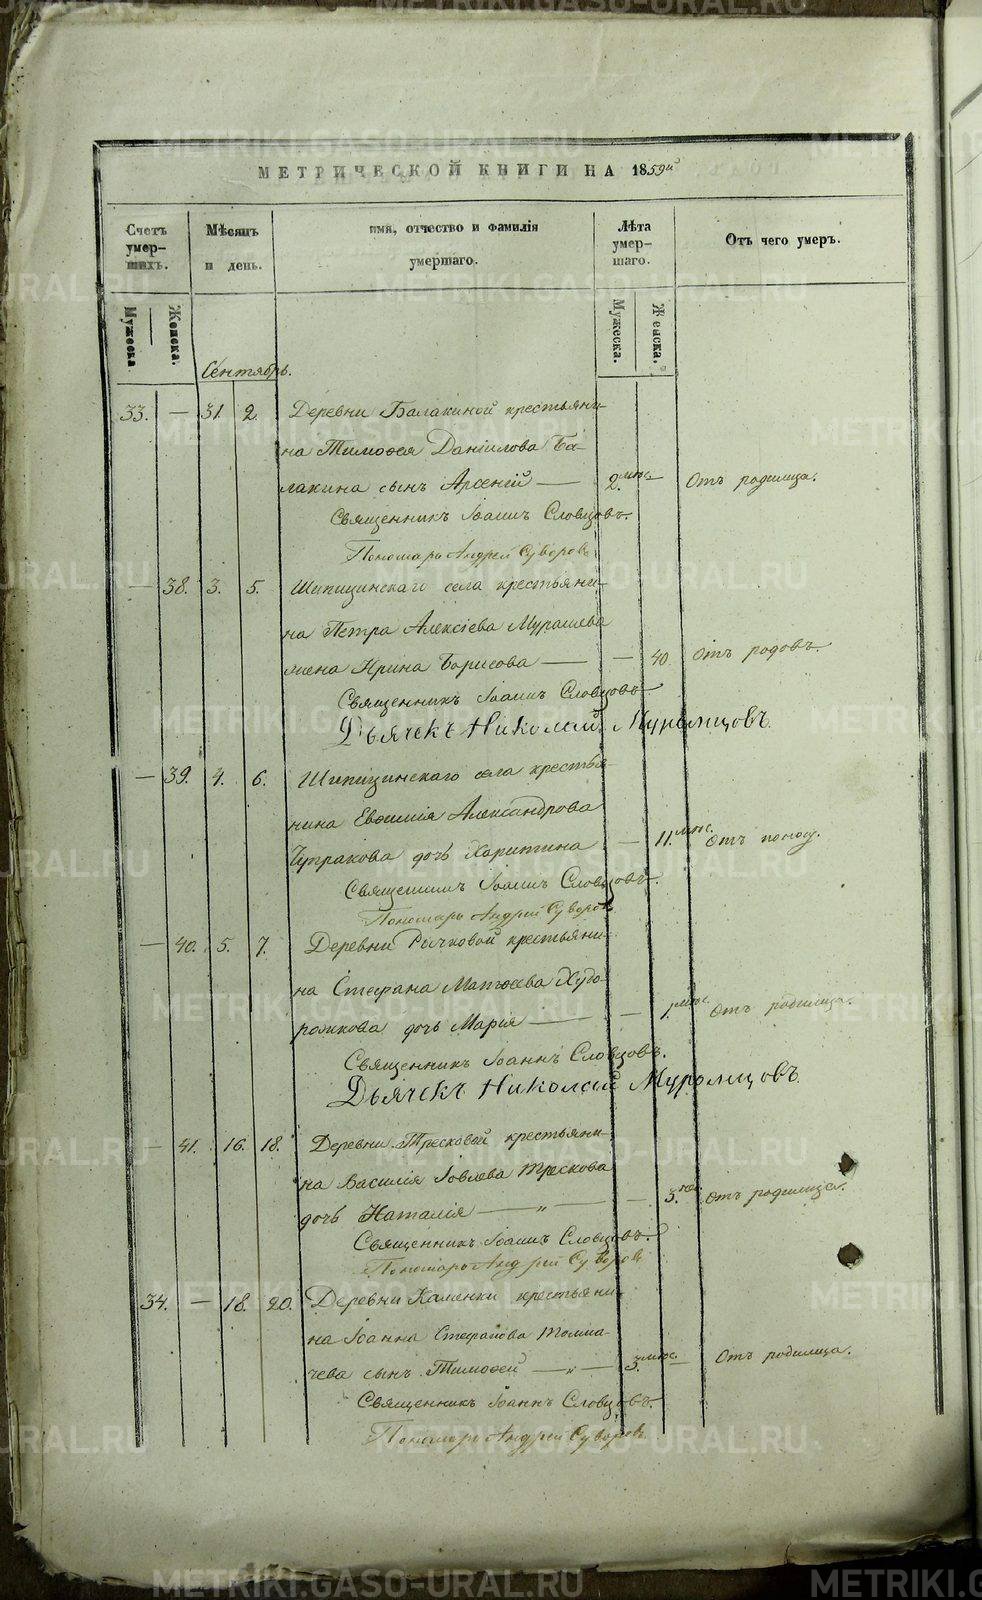 МЕТРИЧЕСКОЙ КНИГИ НА 1859й
Счетъ умершихъ. Мѣсяцъ и день. имя, отчество и фамилія умершаго. Лѣта умершаго. Отъ чего умеръ.
Мужеска. Женска. Мужеска. Женска.
Сентябрь.
33. — 31. 2. Деревни Балакиной крестьяни-
на Тимоѳея Даніилова Ба-
лакина сынъ Арсеній — 2. мѣс. Отъ родимца.
Священникъ Іоаннъ Словцовъ.
Пономарь Андрей Суворовъ
— 38. 3. 5. Шипицинскаго села крестьяни-
на Петра Алексіева Мурашева
жена Ирина Борисова — — 40. Отъ родовъ.
Священникъ Іоаннъ Словцовъ
Дьячекъ Николай Муромцовъ.
— 39. 4. 6. Шипицинскаго села крестья-
нина Евѳимія Александрова
Чупракова дочь Харитина — 11. мѣс. Отъ поносу.
Священникъ Іоаннъ Словцовъ.
Пономарь Андрей Суворовъ
— 40. 5. 7. Деревни Рычковой крестьяни-
на Стефана Матѳеева Худо-
рожкова дочь Марія — — 1. мѣс. Отъ родимца.
Священникъ Іоаннъ Словцовъ.
Дьячекъ Николай Муромцовъ.
— 41. 16. 18. Деревни Тресковой крестьяни-
на Василія Іовлева Трескова
дочь Наталія — „ — — 3. Отъ родимца.
Священникъ Іоаннъ Словцовъ.
Пономарь Андрей Суворовъ
34. — 18. 20. Деревни Каменки крестьяни-
на Іоанна Стефанова Толма-
чева сынъ Тимоѳей — „ — 3. мѣс. Отъ родимца.
Священникъ Іоаннъ Словцовъ.
Пономарь Андрей Суворовъ
METRIKI.GASO-URAL.RU